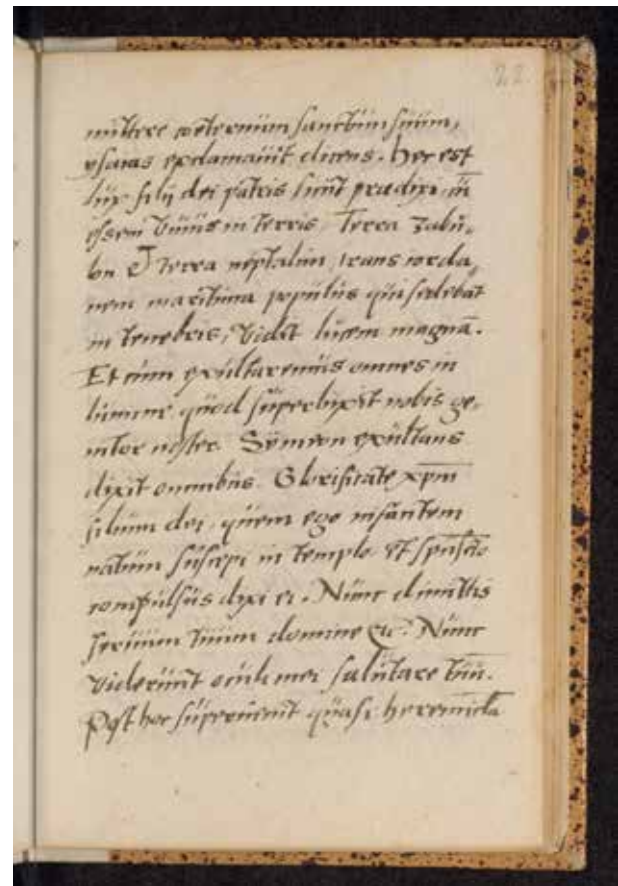 22
mittere coeternum sanctum suum,
ysaias exclamauit dicens. Hec est
lux filij dei patris sicut prædixi, cū
essem viuus in terris, Terra Zabu,,
lon & terra neptalim, trans iorda,,
nem maritima populus qui sedebat
in tenebris, vidit lucem magnā.
Et cum exultaremus omnes in
lumine quod superluxit nobis ge,,
nitor noster. Symeon exultans
dixit omnibus. Glorificate xp̄m
filium dei, quem ego infantem
natum suscepi in templo et spūscto
compulsus dixi ei. Nunc dimittis
seruum tuum domine &c. Nunc
viderunt oculi mei salutare tuū.
Post hec superuenit quasi heremicola